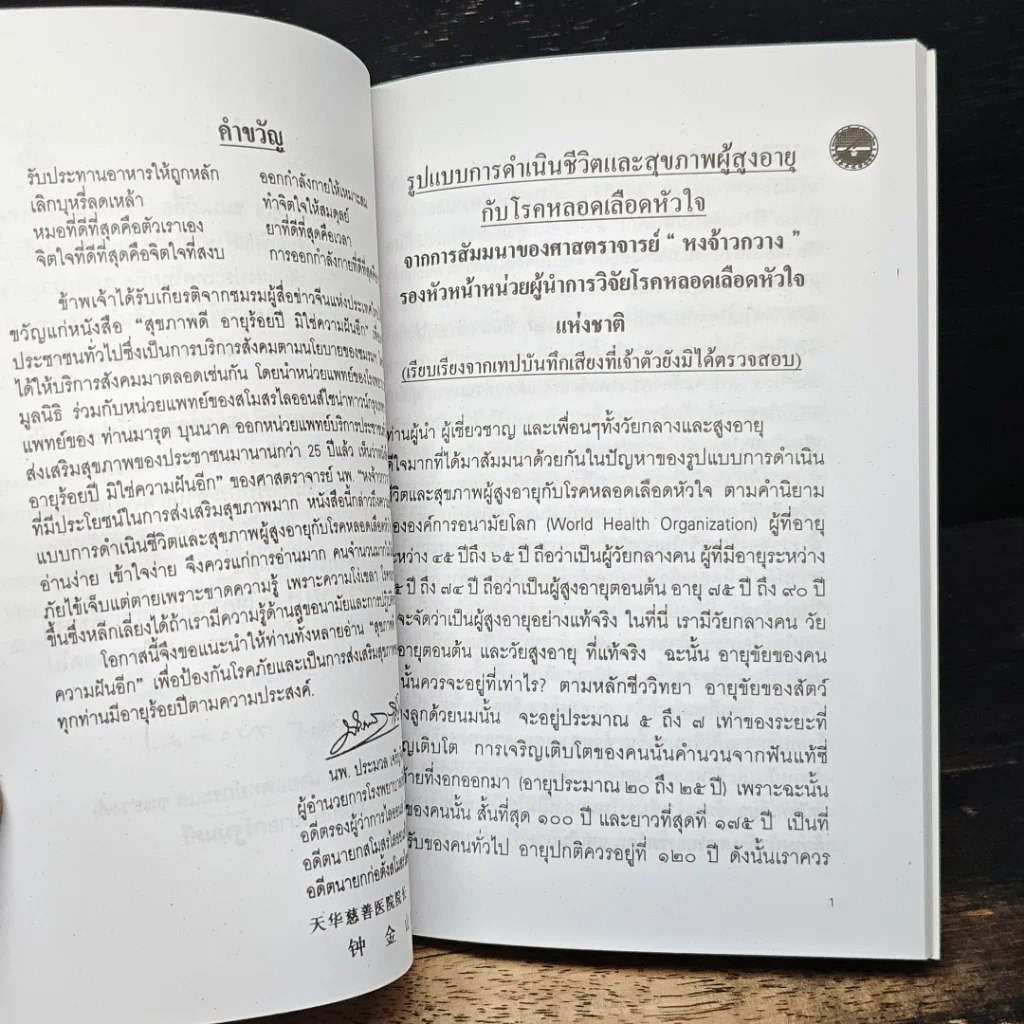 คำขวัญ
รับประทานอาหารให้ถูกหลัก ออกกำลังกายให้เหมาะสม
เลิกบุหรี่ลดเหล้า ทำจิตใจให้สมดุลย์
หมอที่ดีที่สุดคือตัวเราเอง ยาที่ดีที่สุดคือเวลา
จิตใจที่ดีที่สุดคือจิตใจที่สงบ การออกกำลังกายที่ดีที่สุด
ข้าพเจ้าได้รับเกียรติจากชมรมผู้สื่อข่าวจีนแห่งประเทศ
ขวัญแก่หนังสือ “สุขภาพดี อายุร้อยปี มิใช่ความฝันอีก”
ประชาชนทั่วไปซึ่งเป็นการบริการสังคมตามนโยบายของชมรมฯ
ได้ให้บริการสังคมมาตลอดเช่นกัน โดยนำหน่วยแพทย์ของ
มูลนิธิ ร่วมกับหน่วยแพทย์ของสโมสรไลออนส์ไชน่าทาวน์
แพทย์ของ ท่านมารุต บุนนาค ออกหน่วยแพทย์บริการประชาชน
ส่งเสริมสุขภาพของประชาชนมานานกว่า 25 ปีแล้ว เห็นว่า
อายุร้อยปี มิใช่ความฝันอีก” ของศาสตราจารย์ นพ.
ที่มีประโยชน์ในการส่งเสริมสุขภาพมาก หนังสือนี้กล่าวถึง
แบบการดำเนินชีวิตและสุขภาพผู้สูงอายุกับโรคหลอดเลือด
อ่านง่าย เข้าใจง่าย จึงควรแก่การอ่านมาก คนจำนวนมาก
ภัยไข้เจ็บแต่ตายเพราะขาดความรู้ เพราะความโง่เขลา
ขึ้นซึ่งหลีกเลี่ยงได้ถ้าเรามีความรู้ด้านสุขอนามัยและการ
โอกาสนี้จึงขอแนะนำให้ท่านทั้งหลายอ่าน “สุขภาพดี
ความฝันอีก” เพื่อป้องกันโรคภัยและเป็นการส่งเสริมสุขภาพ
ทุกท่านมีอายุร้อยปีตามความประสงค์.
นพ. ประมวล
ผู้อำนวยการโรงพยาบาล
อดีตรองผู้ว่าการไลออนส์
อดีตนายกสโมสรไลออนส์
อดีตนายกก่อตั้งสโมสร
天华慈善医院院长
钟 金
รูปแบบการดำเนินชีวิตและสุขภาพผู้สูงอายุ
กับโรคหลอดเลือดหัวใจ
จากการสัมมนาของศาสตราจารย์ “ หงจ้าวกวาง ”
รองหัวหน้าหน่วยผู้นำการวิจัยโรคหลอดเลือดหัวใจ
แห่งชาติ
(เรียบเรียงจากเทปบันทึกเสียงที่เจ้าตัวยังมิได้ตรวจสอบ)
ท่านผู้นำ ผู้เชี่ยวชาญ และเพื่อนๆทั้งวัยกลางและสูงอายุ
ดีใจมากที่ได้มาสัมมนาด้วยกันในปัญหาของรูปแบบการดำเนิน
ชีวิตและสุขภาพผู้สูงอายุกับโรคหลอดเลือดหัวใจ ตามคำนิยาม
ขององค์การอนามัยโลก (World Health Organization) ผู้ที่อายุ
ระหว่าง ๔๕ ปีถึง ๖๕ ปี ถือว่าเป็นผู้วัยกลางคน ผู้ที่มีอายุระหว่าง
๕ ปี ถึง ๗๔ ปี ถือว่าเป็นผู้สูงอายุตอนต้น อายุ ๗๕ ปี ถึง ๙๐ ปี
จะจัดว่าเป็นผู้สูงอายุอย่างแท้จริง ในที่นี้ เรามีวัยกลางคน วัย
อายุตอนต้น และวัยสูงอายุ ที่แท้จริง ฉะนั้น อายุขัยของคน
นั้นควรจะอยู่ที่เท่าไร? ตามหลักชีววิทยา อายุขัยของสัตว์
ลูกด้วยนมนั้น จะอยู่ประมาณ ๕ ถึง ๗ เท่าของระยะที่
ญเติบโต การเจริญเติบโตของคนนั้นคำนวนจากฟันแท้ซี่
ที่งอกออกมา (อายุประมาณ ๒๐ ถึง ๒๕ ปี) เพราะฉะนั้น
ของคนนั้น สั้นที่สุด ๑๐๐ ปี และยาวที่สุดที่ ๑๗๕ ปี เป็นที่
รับของคนทั่วไป อายุปกติควรอยู่ที่ ๑๒๐ ปี ดังนั้นเราควร
1